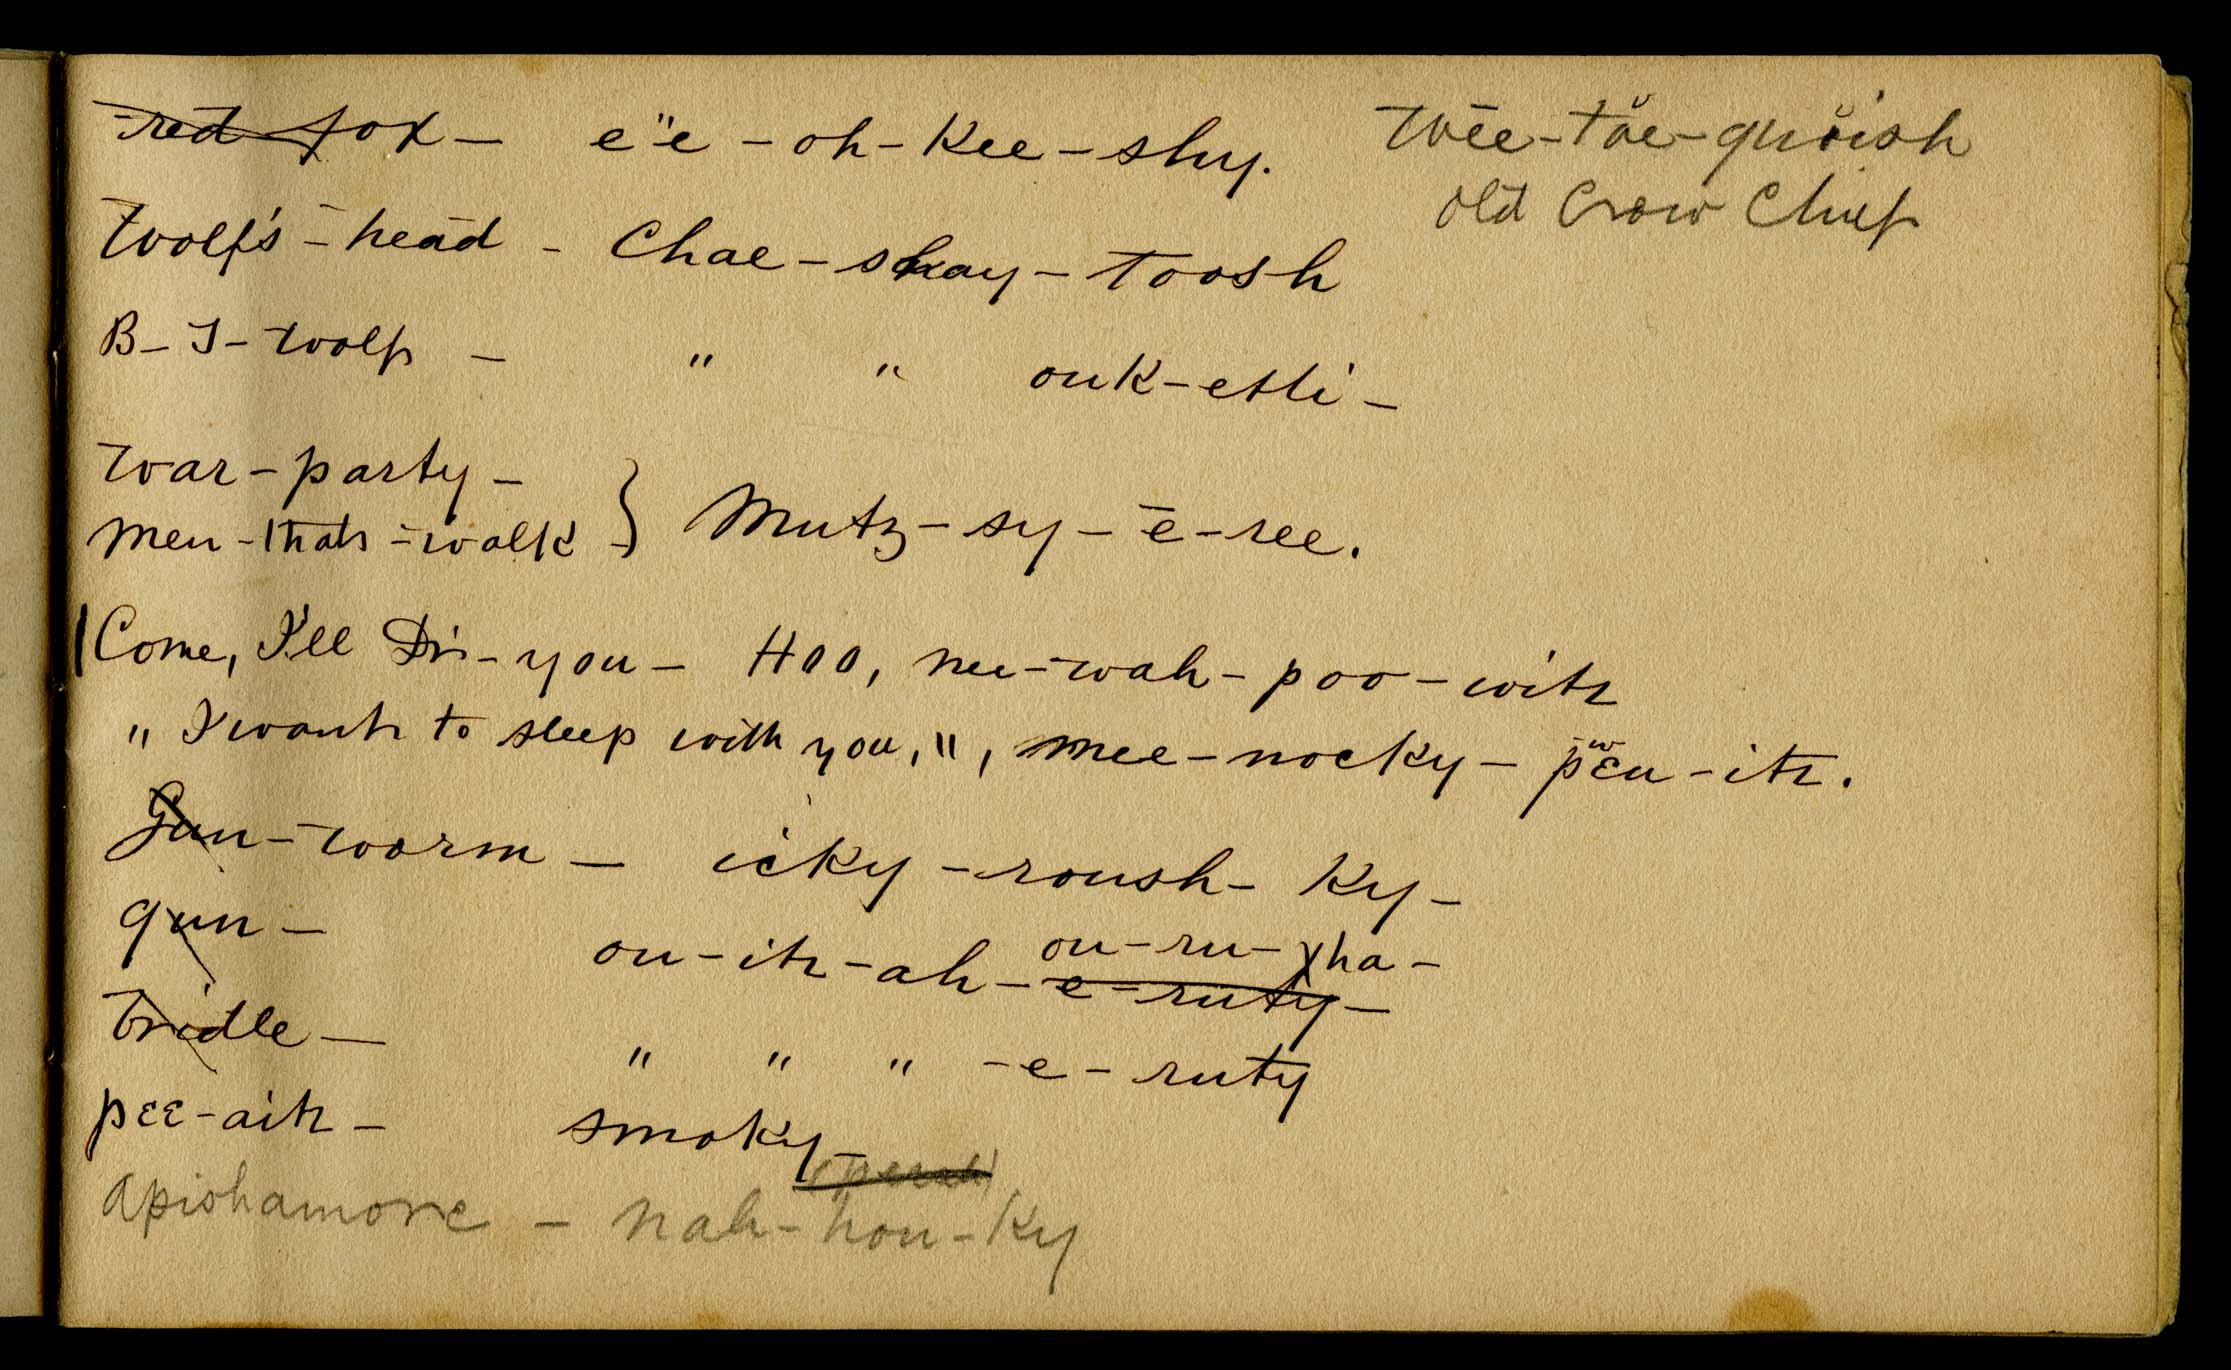 red fox - e"e - oh - Kee - shy.
Wee - tae - quoish
old Crow Chief
Wolf's - head - Chae - skay - toosh
B - I - wolf - " " ouk - etli -
War - party -
Men - that - walk } Mutz - sy - ē - ree.
Come, I'll - you - Hoo, nee - wah - poo - witz
" I want to sleep with you, ", mee - nocky - peu - itz.
Gun - worm - icky - roush - Ky -
gun - ou - itz - ah - e - ruty -
ou - ru - xha -
Bridle - " " " - e - ruty
pee - aitz - smoky -
apishamore - Nah - hou - Ky